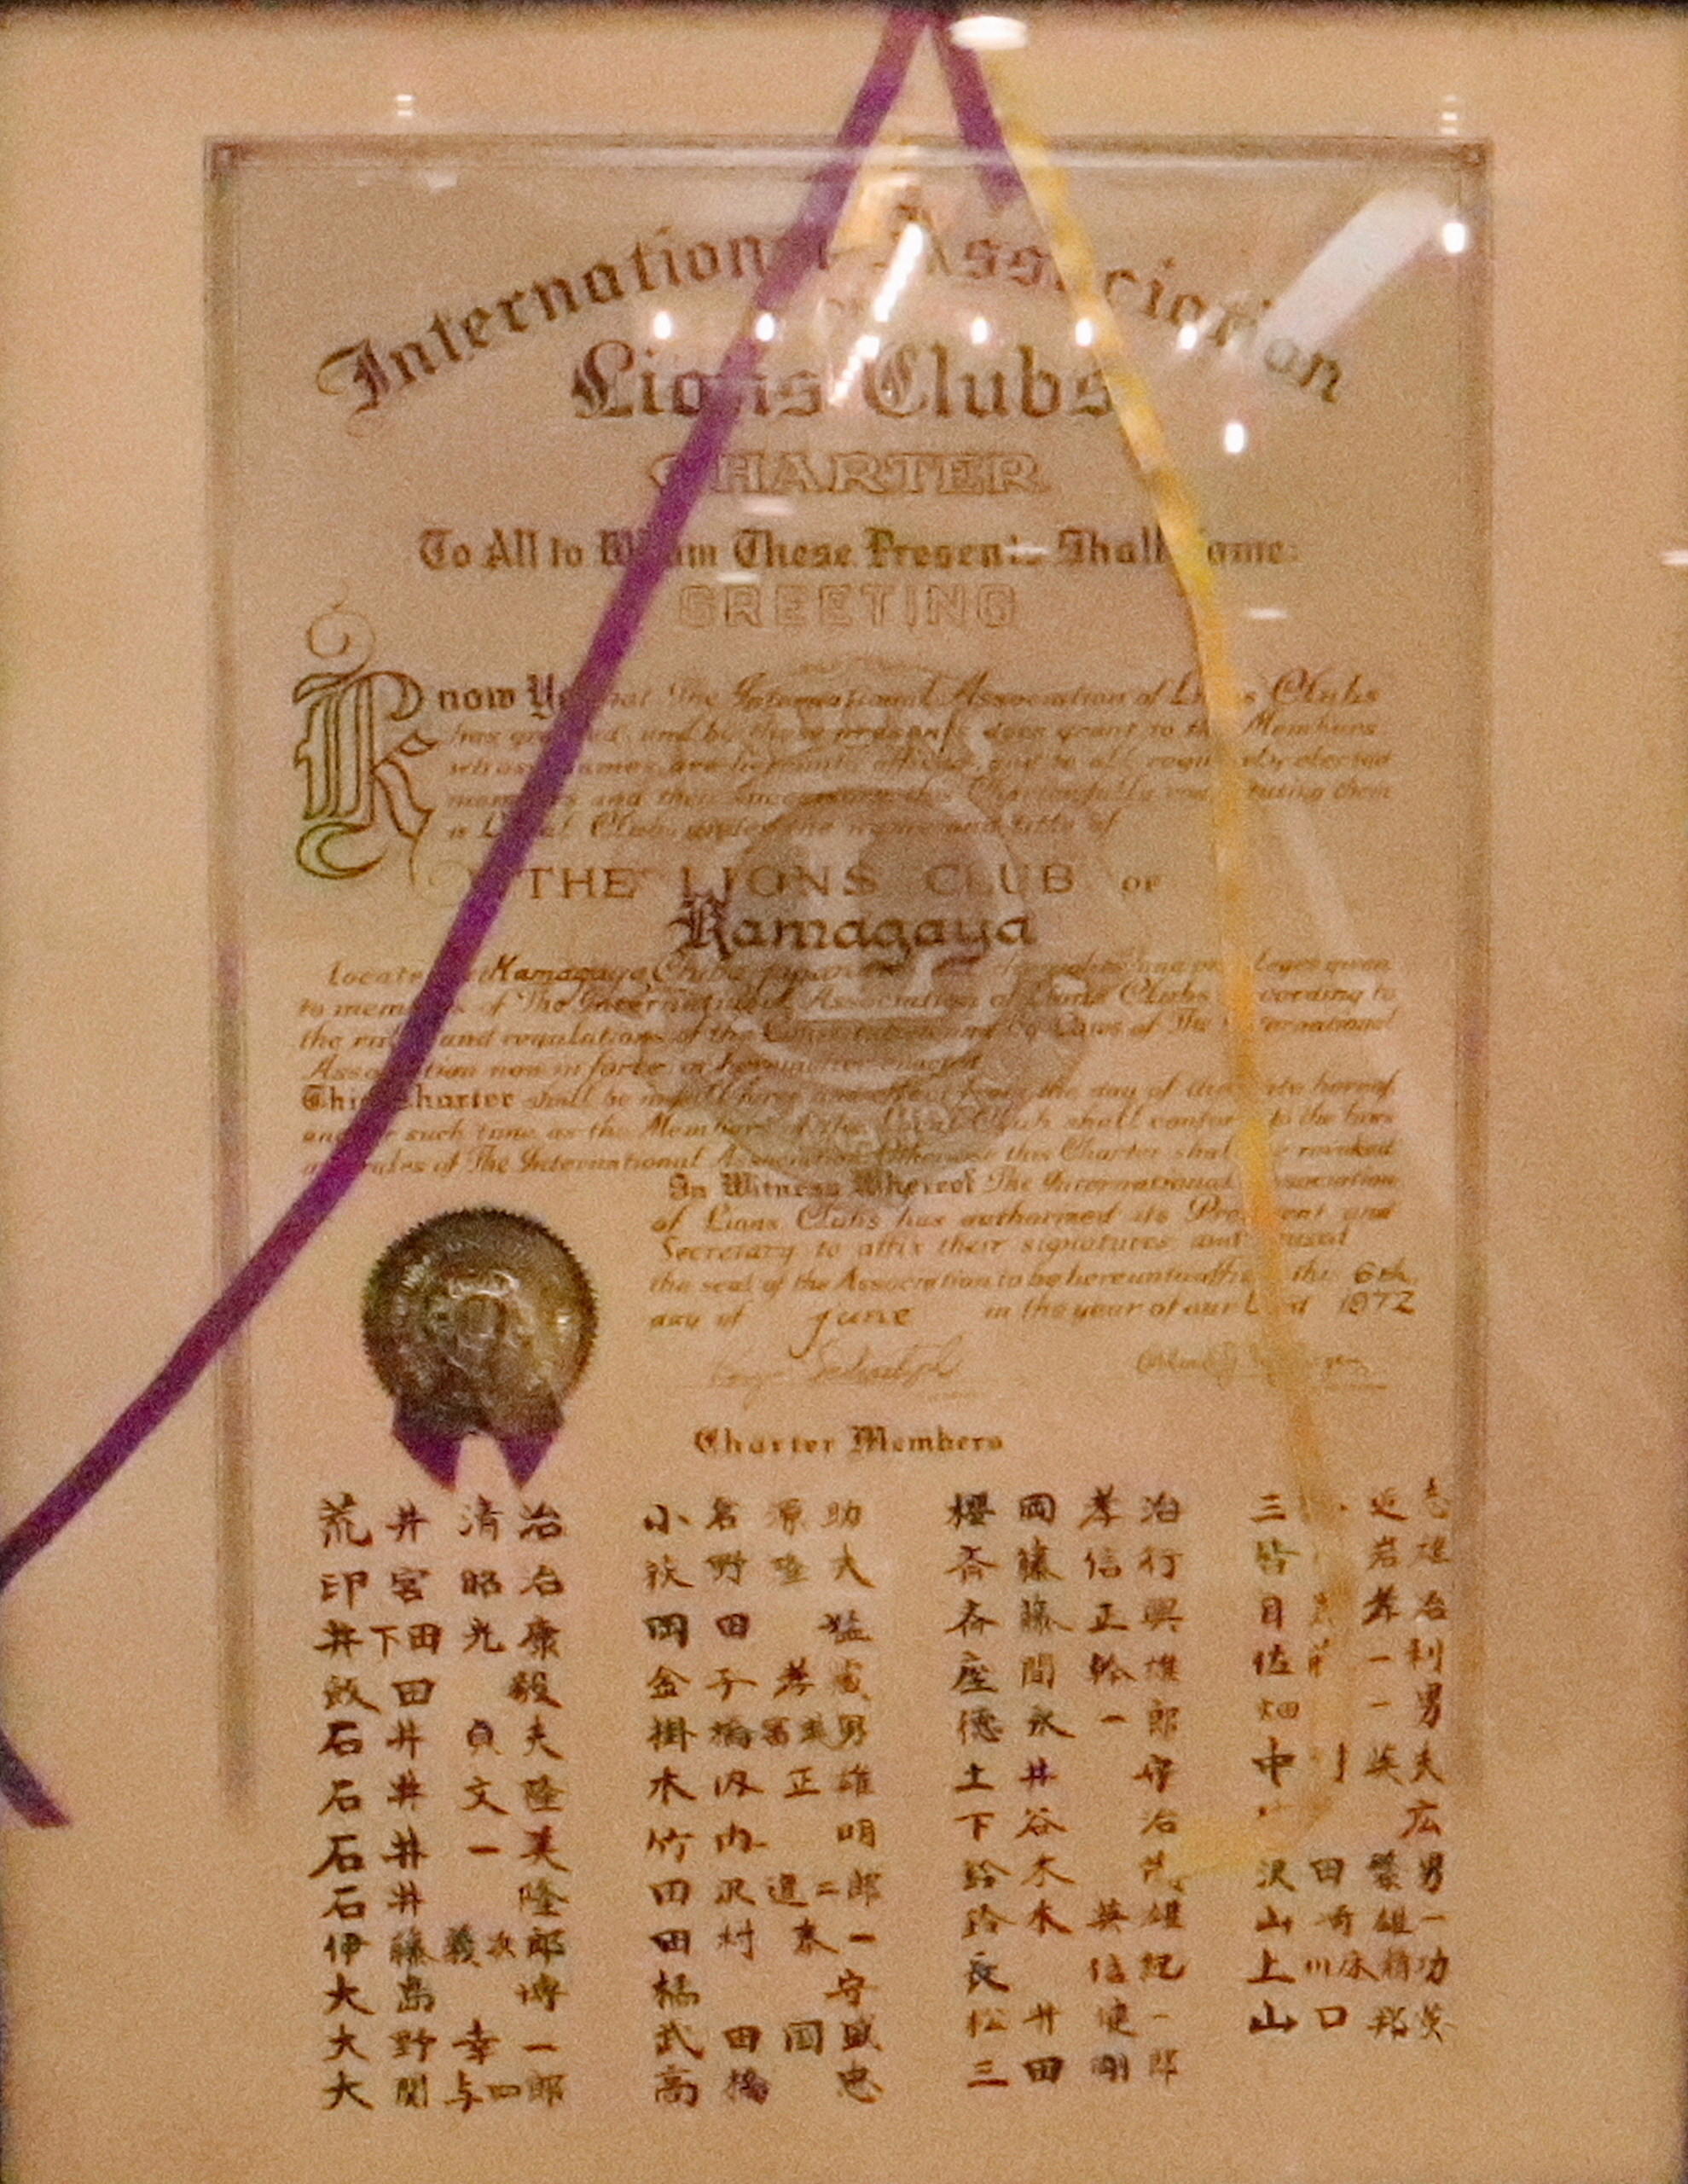 International Association
Lions Clubs
CHARTER
To All to Whom These Presents Shall Come:
GREETING
Know Ye that The International Association of Lions Clubs
has granted and by these presents does grant to the Members
whose names are hereunto affixed, and to all regularly elected
members and their successors this Charter
a Local Club, under the name and title of
THE LIONS CLUB OF
Kamagaya
Located Kamagaya, Chiba, Japan rights and privileges given
to members of The International Association of Lions Clubs according to
the rules and regulations of the Constitution and By Laws of The International
Association now in force or hereinafter enacted
This Charter shall be in full force and effect from the day of the date hereof
and for such time as the Members of the Local Club shall conform to the laws
and rules of The International Association Otherwise this Charter shall be revoked
In Witness Whereof The International Association
of Lions Clubs has authorized its President and
Secretary to affix their signatures and caused
the seal of the Association to be hereunto affixed this 6th
day of June in the year of our Lord 1972
Charter Members
荒井 清治
印宮 昭治
井下田 光康
飯田 毅
石井 貞夫
石井 文隆
石井 一美
石井 隆
伊藤 義次郎
大島 博
大野 幸一
大関 与四郎
小名 源助
荻野 隆大
岡田 猛
金子 孝
掛橋 男
木内 正雄
竹内 明
田沢 進二郎
田村 泰一
橘 守
武田 国盛
高橋 忠
櫻岡 孝治
斉藤 信行
斉藤 正興
座間 雄
徳永 一郎
土井 守
下谷 治
鈴木
鈴木 英雄
長 信紀
松井 健一
三田 剛郎
三
岩雄
目 孝治
佐 一利
畑 一男
中 英夫
広
沢田 繁男
山崎 雄一
上川床 精功
山口 邦英